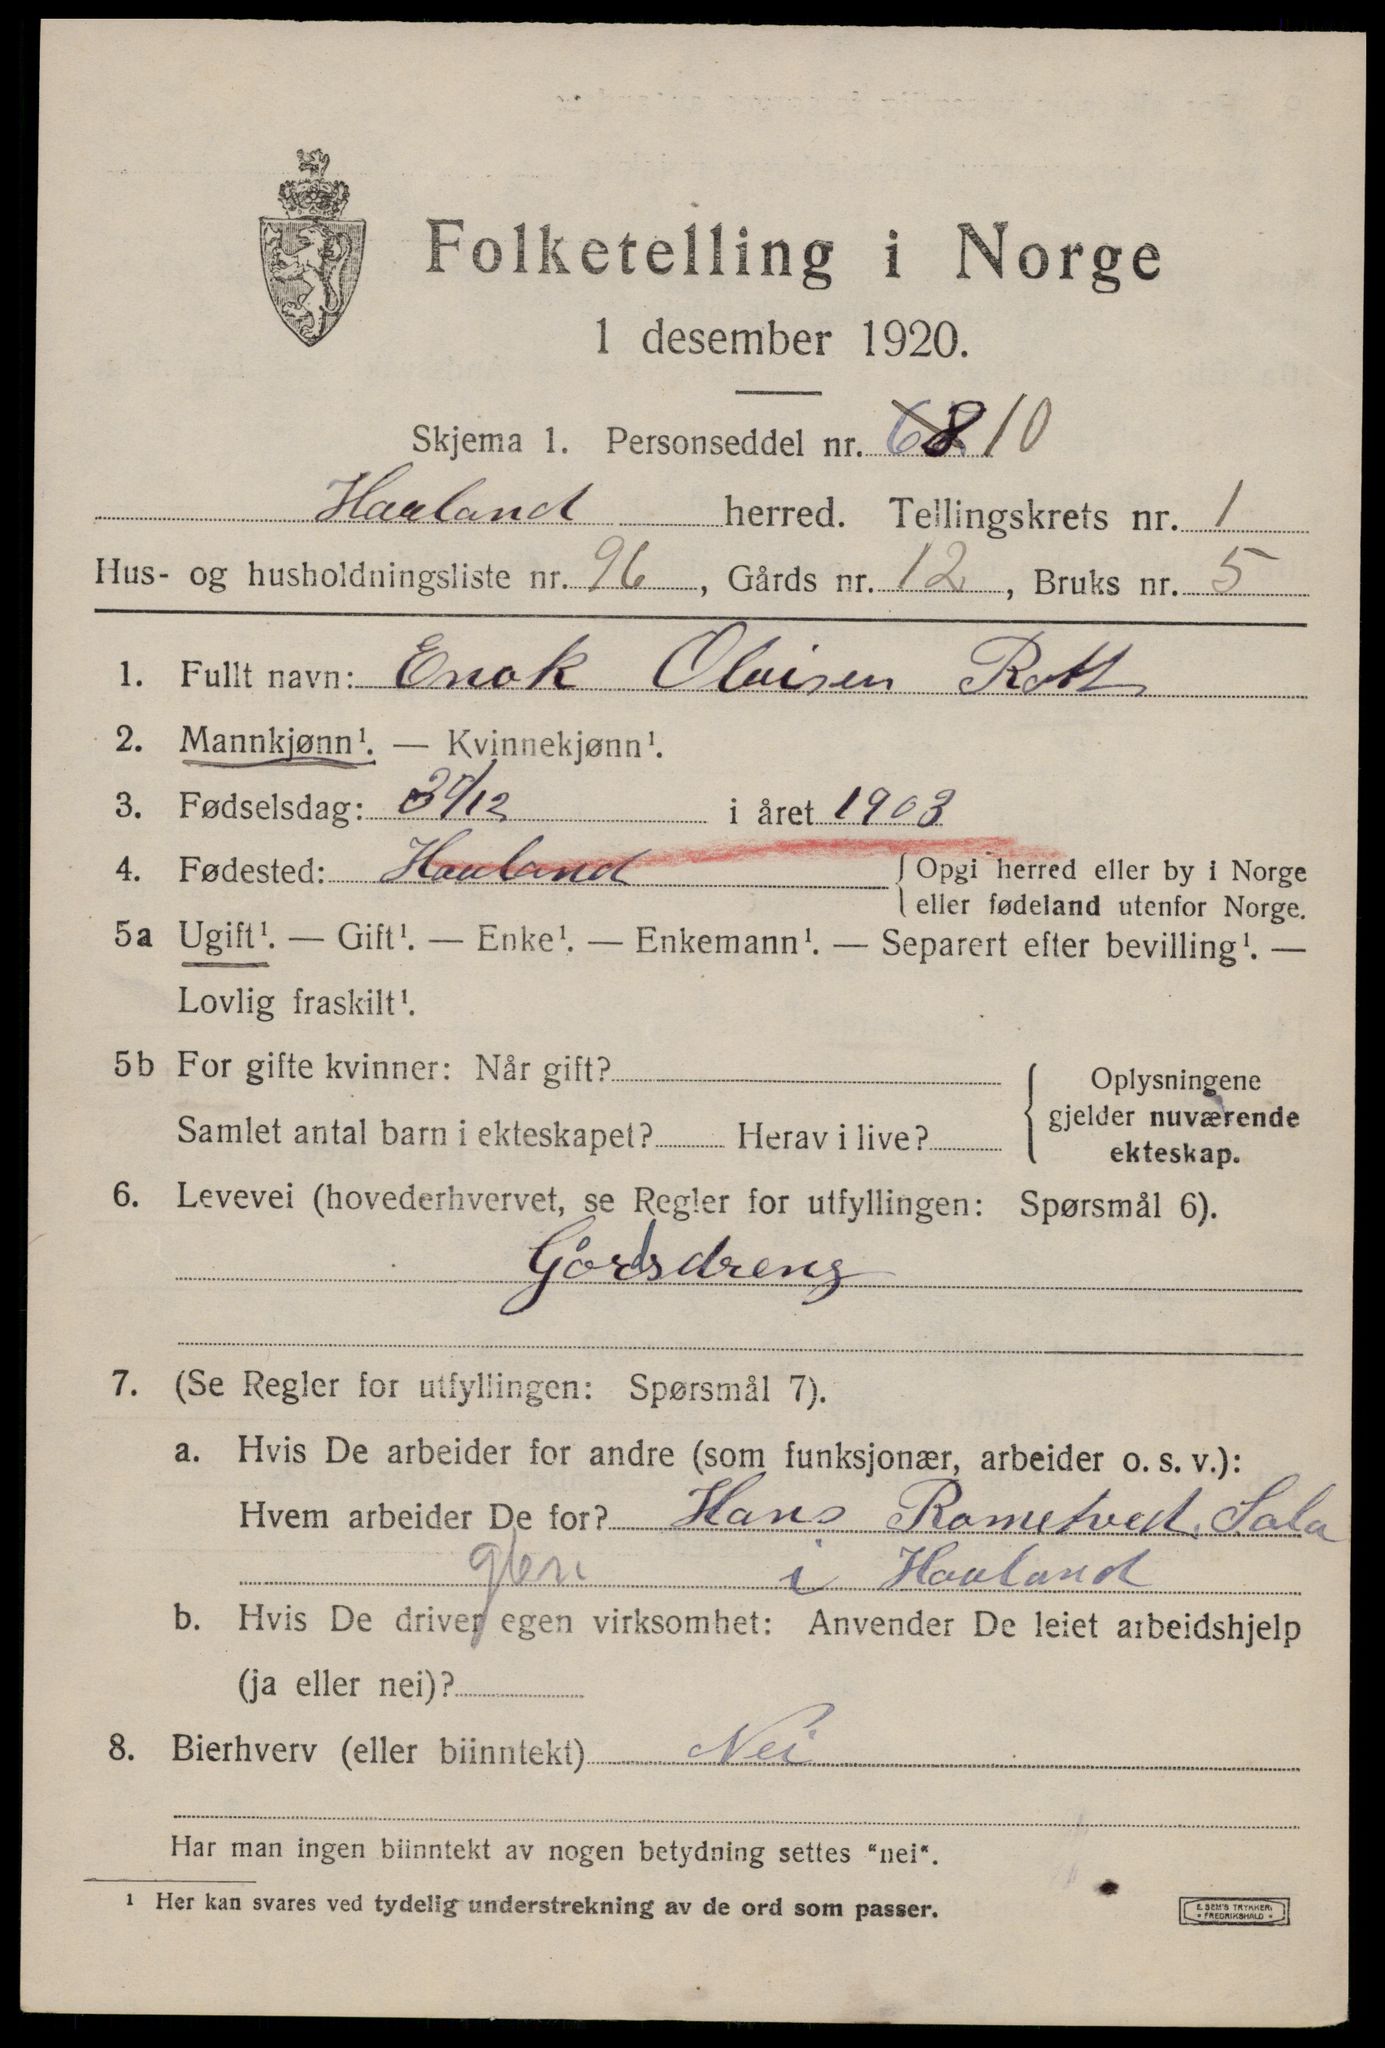 Folketelling i Norge
1 desember 1920.
Skjema 1. Personseddel nr. 68 10
Haaland herred. Tellingskrets nr. 1
Hus- og husholdningsliste nr. 96, Gårds nr. 12, Bruks nr. 5
1. Fullt navn: Enok Olaisen Rott
2. Mannkjønn¹. — Kvinnekjønn¹.
3. Fødselsdag: /12 i året 1903
4. Fødested: Haaland { Opgi herred eller by i Norge
eller fødeland utenfor Norge.
5a Ugift¹. — Gift¹. — Enke¹. — Enkemann¹. — Separert efter bevilling¹. —
Lovlig fraskilt¹.
5b For gifte kvinner: Når gift?
Samlet antal barn i ekteskapet? Herav i live?
{ Oplysningene
gjelder nuværende
ekteskap.
6. Levevei (hovederhvervet, se Regler for utfyllingen: Spørsmål 6).
Gårdsdreng
7. (Se Regler for utfyllingen: Spørsmål 7).
a. Hvis De arbeider for andre (som funksjonær, arbeider o. s. v.):
Hvem arbeider De for? Hans Rometvedt, Sola
i Haaland
b. Hvis De driver egen virksomhet: Anvender De leiet arbeidshjelp
(ja eller nei)?
8. Bierhverv (eller biinntekt) Nei
Har man ingen biinntekt av nogen betydning settes "nei".
¹ Her kan svares ved tydelig understrekning av de ord som passer.
E. SEM'S TRYKKERI
FREDRIKSHALD